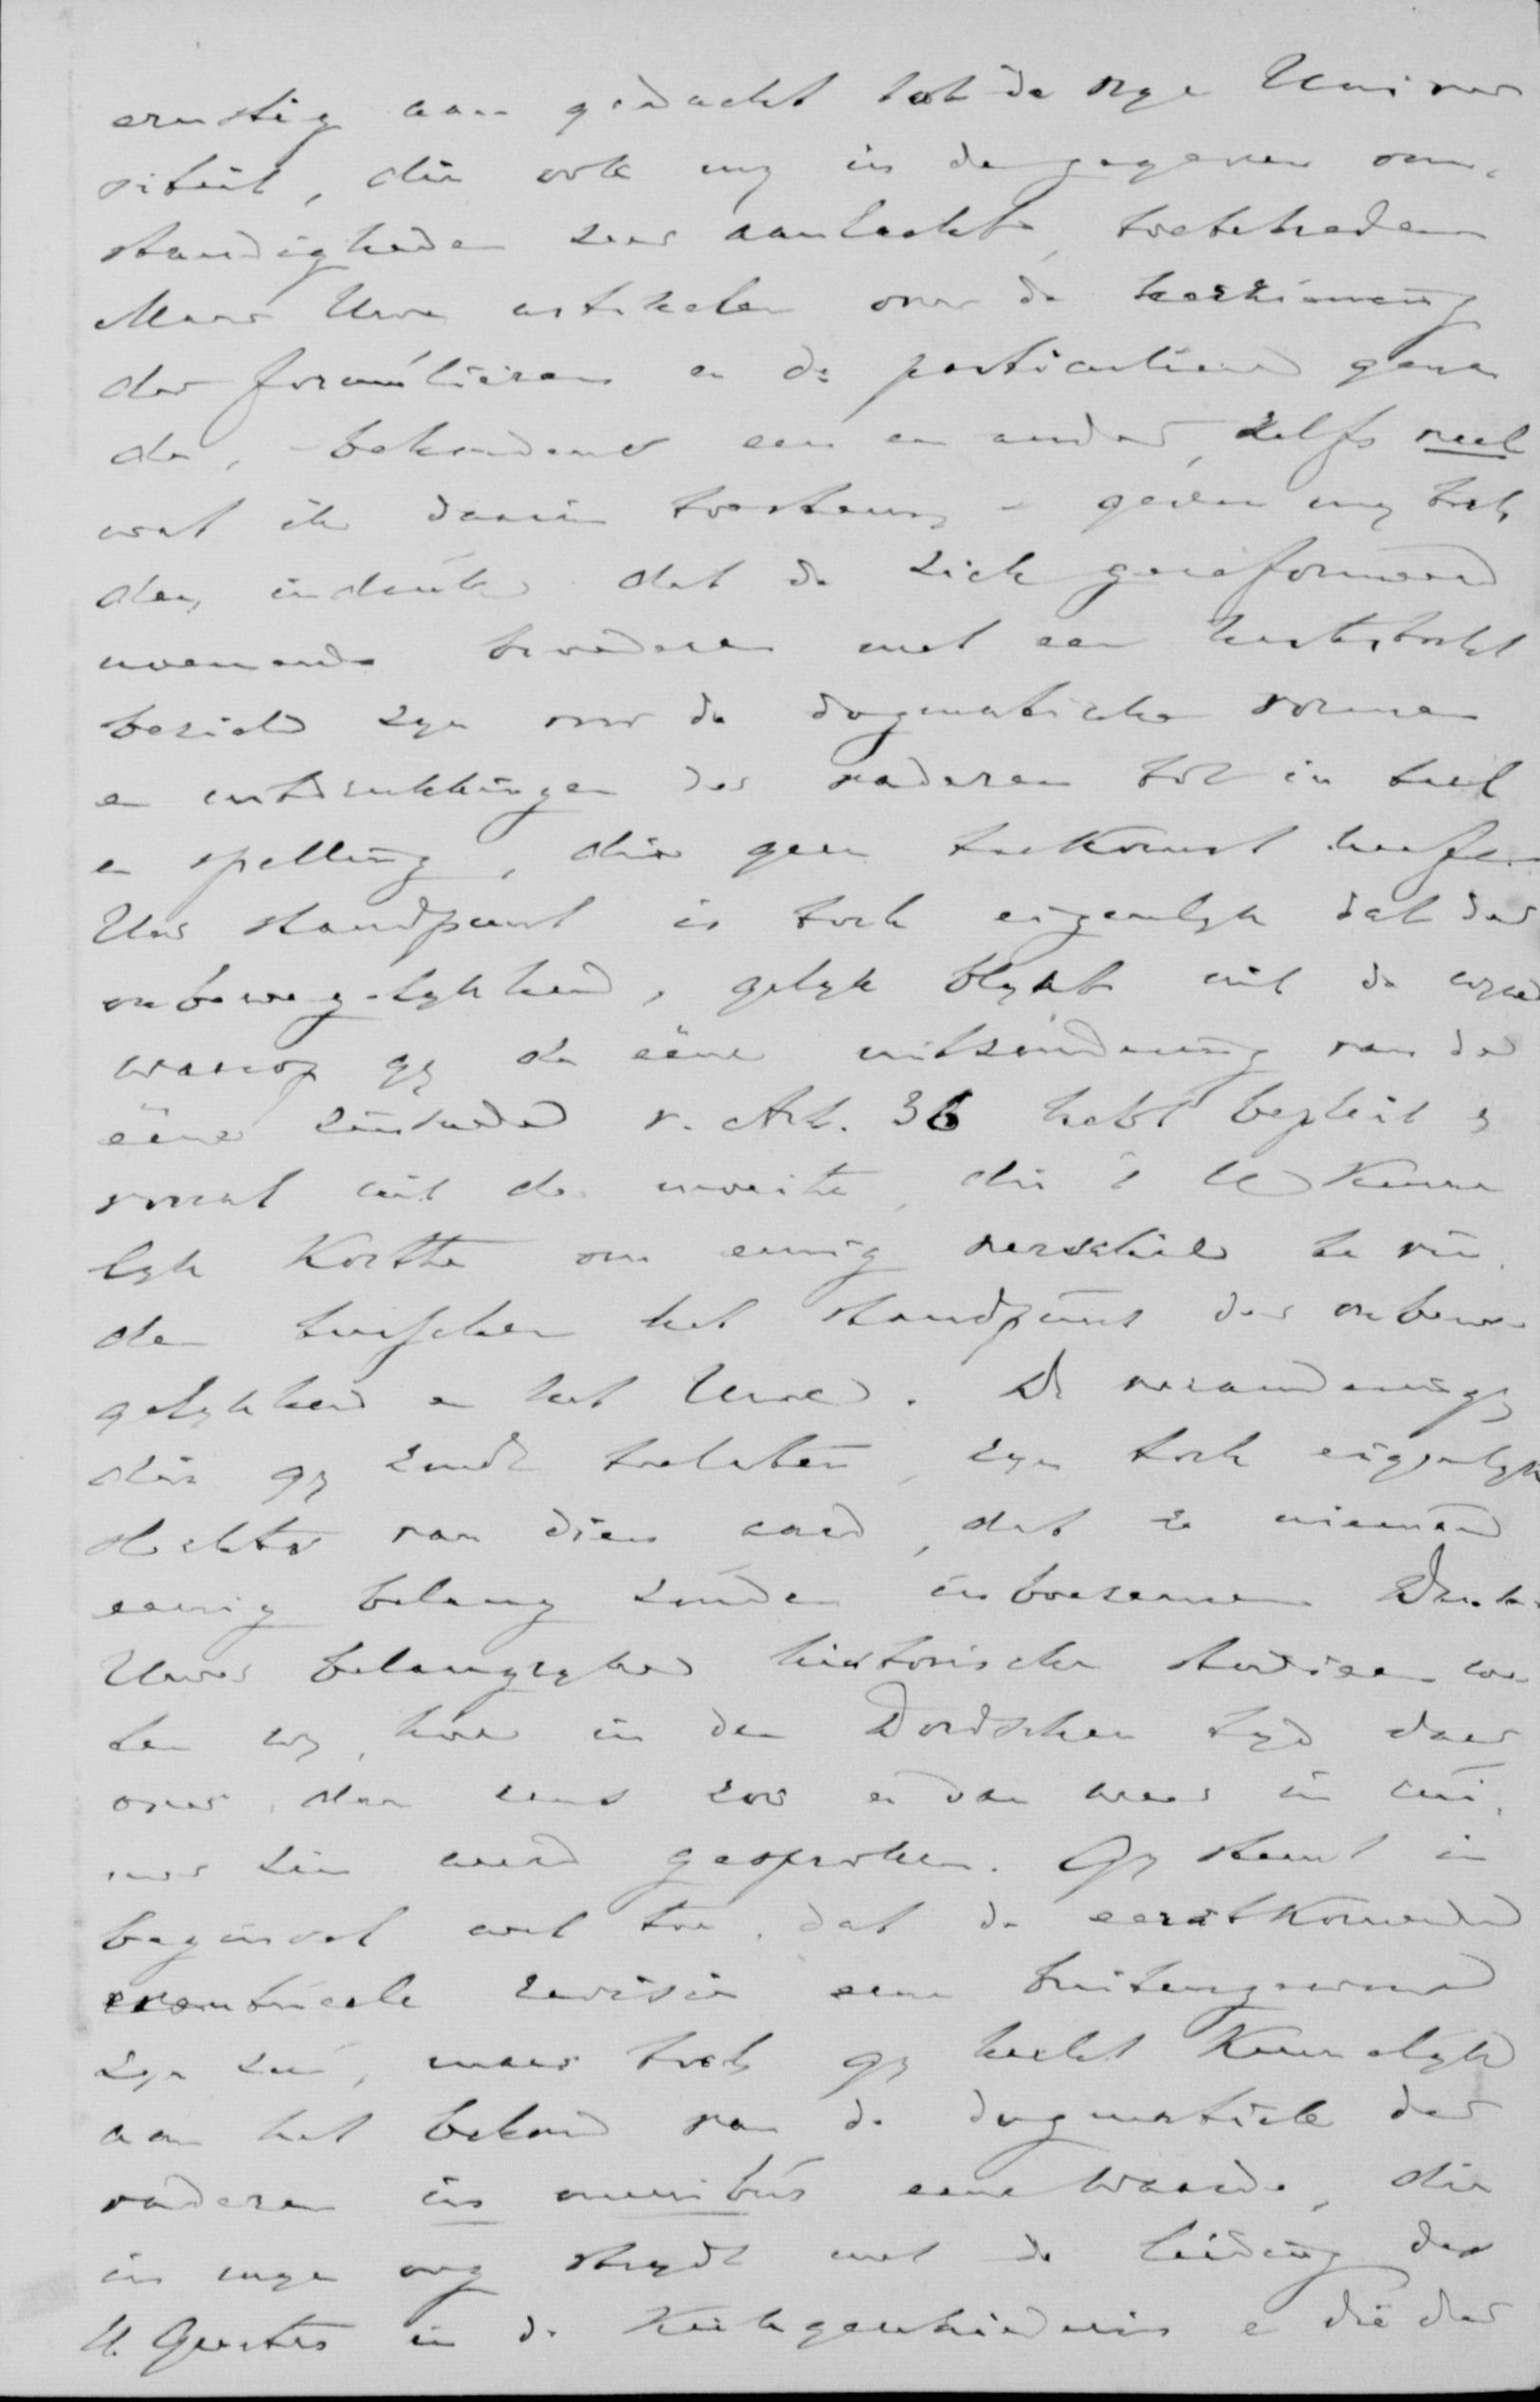 ernstig aan gedacht tot de vrye Univer
siteit, die ook my in de gegeven om,
standigheden zeer aanlachte, toetetreden
Maar Uwe artikelen over de herziening
der formulieren en de particuliere gena
de, behoudens een en ander, zelfs veel
wat ik daarin toestem, - geven my toch
den indruk dat de zich gereformeerd
noemende broederen met een hartstocht
bezield zyn voor de dogmatische vormen
en uitdrukkingen der vaderen tot in taal
en spelling, die geen toekomst heeft.
Uw standpunt is toch eigenlyk dat der
onbewegelykheid, gelyk blykt uit de wyze
waarop gy de ééne uitzondering van de
ééne zinsnede v. Art. 36 hebt bepleit en
vooral uit de moeite, die 't U kenne
lyk kostte om eenig verschil te vin
den tusschen het standpunt der onbewe
gelykheid en het Uwe. De veranderingen
die gy zoudt toelaten, zyn toch eigenlyk
slechts van dien aard, dat ze niemand
eenig belang zouden inboezemen. Dank
Uwe belangryke historische studieen we
ten wy, hoe in den Dordschen tyd daar
over, dan eens zoo en dan weer in
zin werd gesproken. Gy stemt in
beginsel wel toe, dat de eerstkomende
eventueele revisie eene buitengewone
zyn zou, maar toch gy hecht kennelyk
aan het behoud van de dogmatiek der
vaderen in omnibus eene waarde, die
in myn oog strydt met de leiding des
H. Geestes in de Kerkgeschiedenis en die der